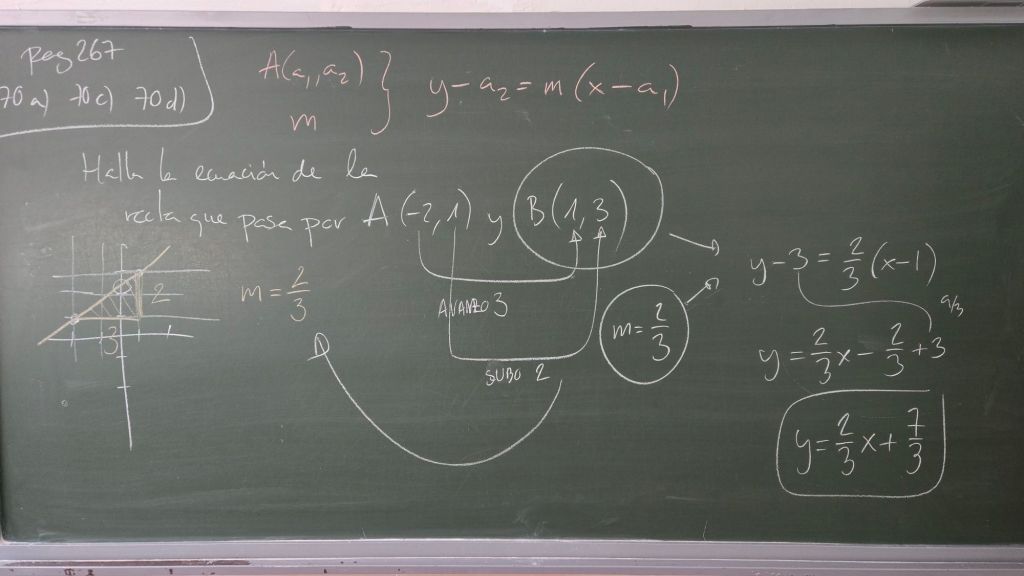 Pag 267
70 a) 70 c) 70 d)
A(a₁, a₂)
m
y - a₂ = m (x - a₁)
Halla la ecuación de la
recta que pasa por A (-2, 1) y B (1, 3)
AVANZO 3
SUBO 2
2
3
m = 2/3
m = 2/3
y - 3 = 2/3 (x - 1)
9/3
y = 2/3 x - 2/3 + 3
y = 2/3 x + 7/3